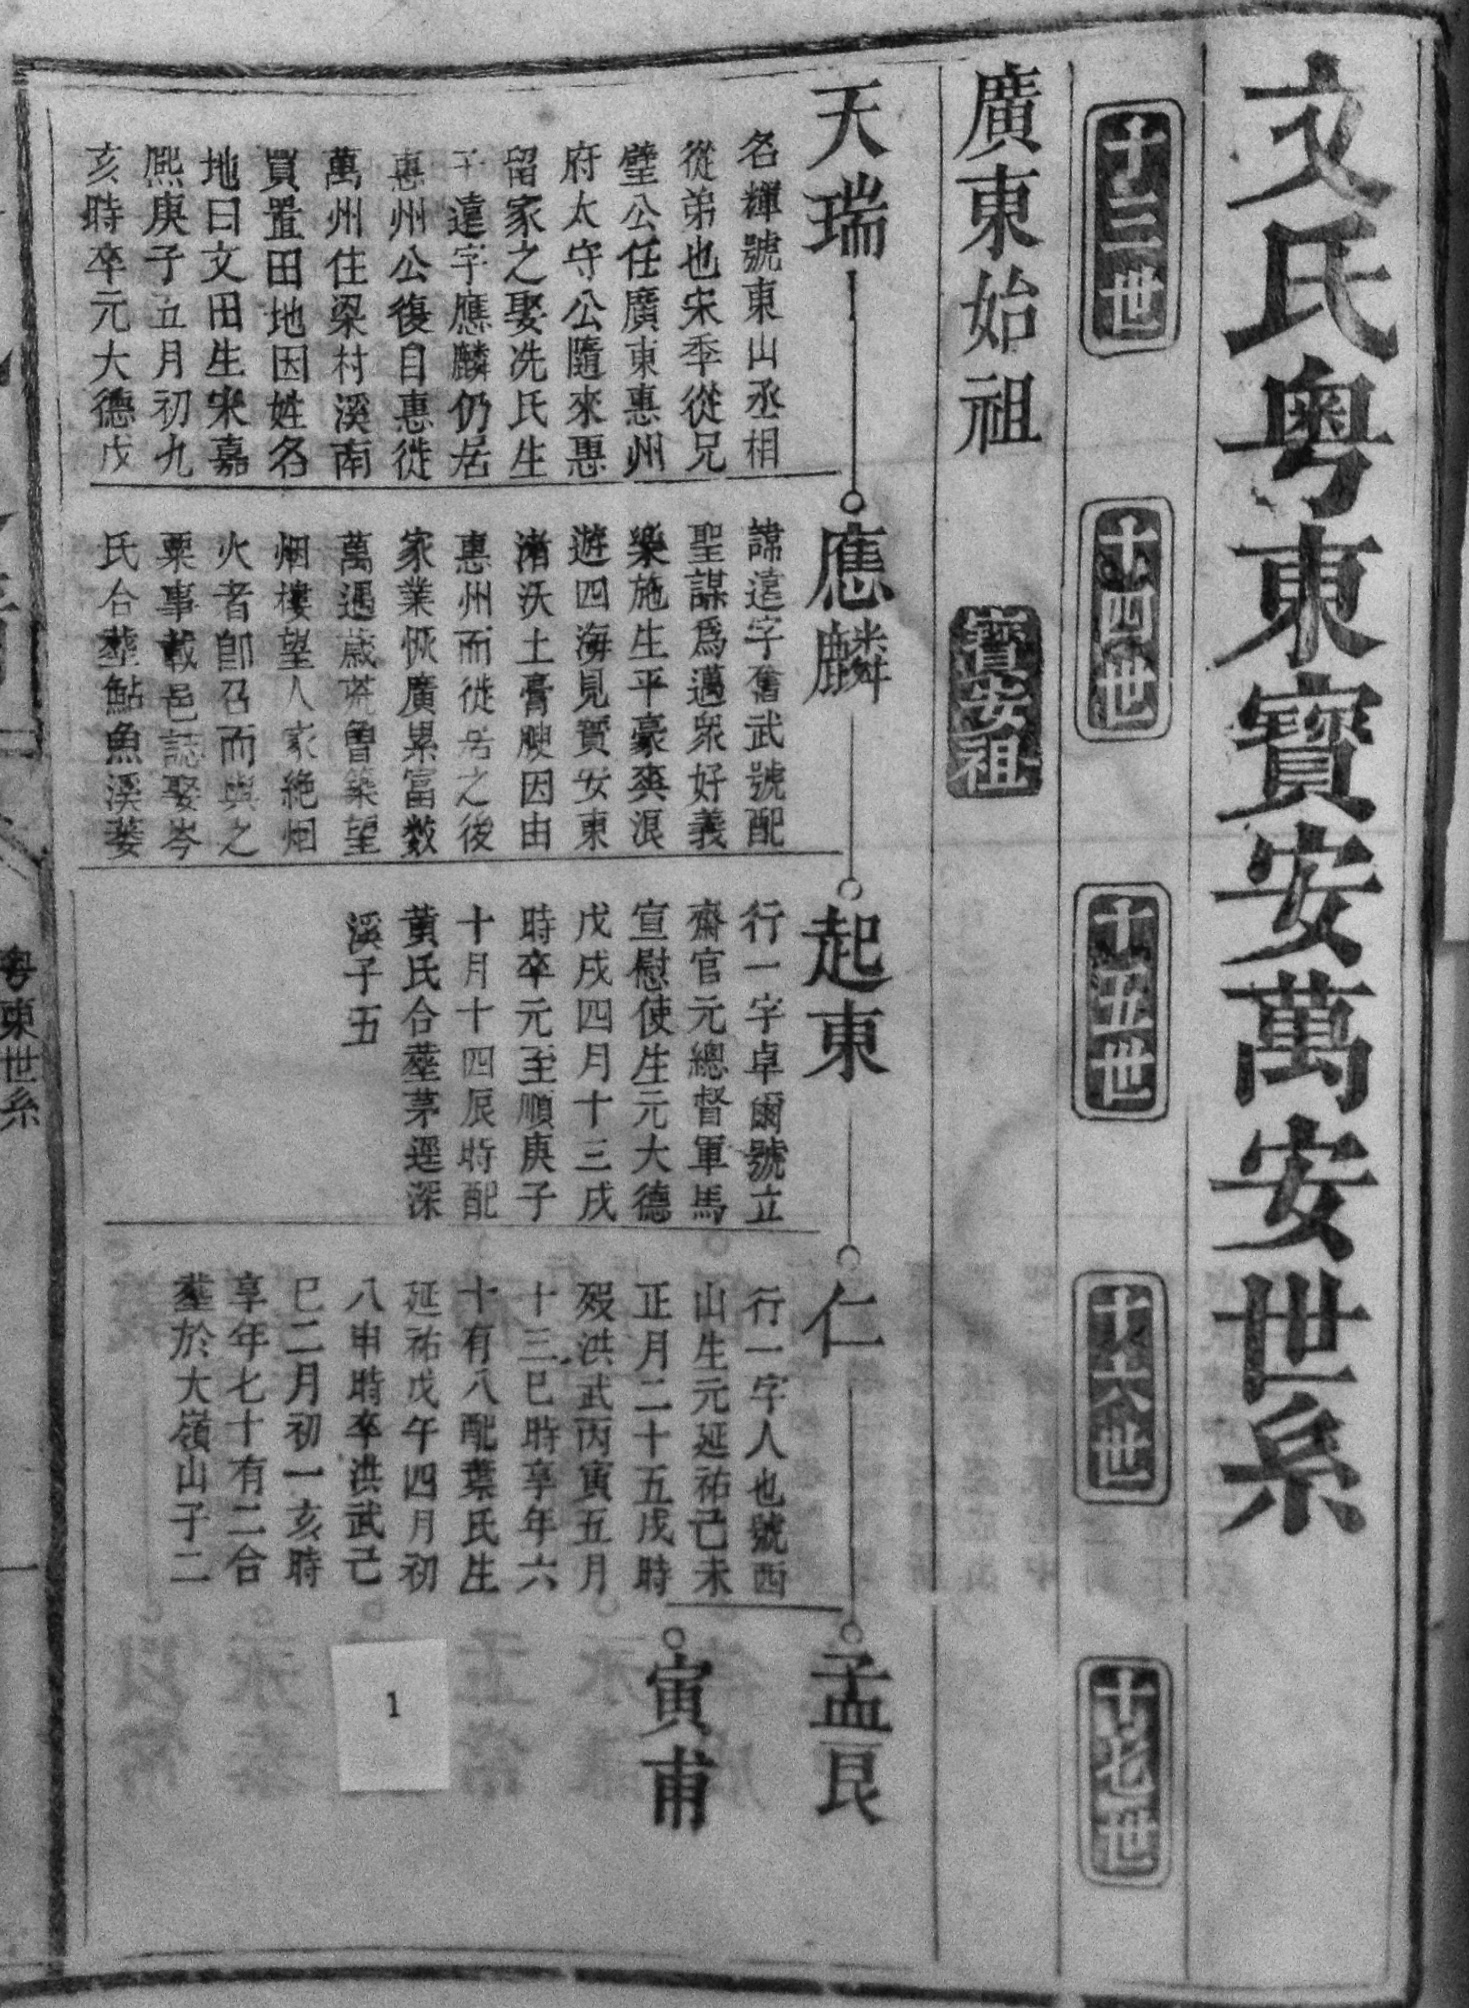 文氏粵東寶安萬安世系
十三世
十四世
十五世
十六世
十七世
廣東始祖
寶安祖
天瑞
名輝號東山丞相
從弟也宋季從兄
璧公任廣東惠州
府太守公隨來惠
留家之娶冼氏生
子遠字應麟仍居
惠州公復自惠徙
萬州住梁村溪南
買置田地因姓名
地曰文田生宋嘉
熙庚子五月初九
亥時卒元大德戊
應麟
諱遠字奮武號配
聖謀爲邁衆好義
樂施生平豪爽浪
遊四海見寶安東
渚沃土膏腴因由
惠州而徙居之後
家業恢廣累富数
萬遇歲荒魯築望
烟樓望人家絶烟
火者卽召而與之
粟事載邑誌娶岑
氏合塟鮎魚溪蔞
起東
行一字卓爾號立
齋官元總督軍馬
宣慰使生元大德
戊戌四月十三戌
時卒元至順庚子
十月十四辰時配
黃氏合塟茅逕深
溪子五
仁
行一字人也號西
山生元延祐己未
正月二十五戌時
歿洪武丙寅五月
十三巳時享年六
十有八配葉氏生
延祐戊午四月初
八申時卒洪武己
巳二月初一亥時
享年七十有二合
塟於大嶺山子二
孟艮
寅甫
1
粵東世系
一